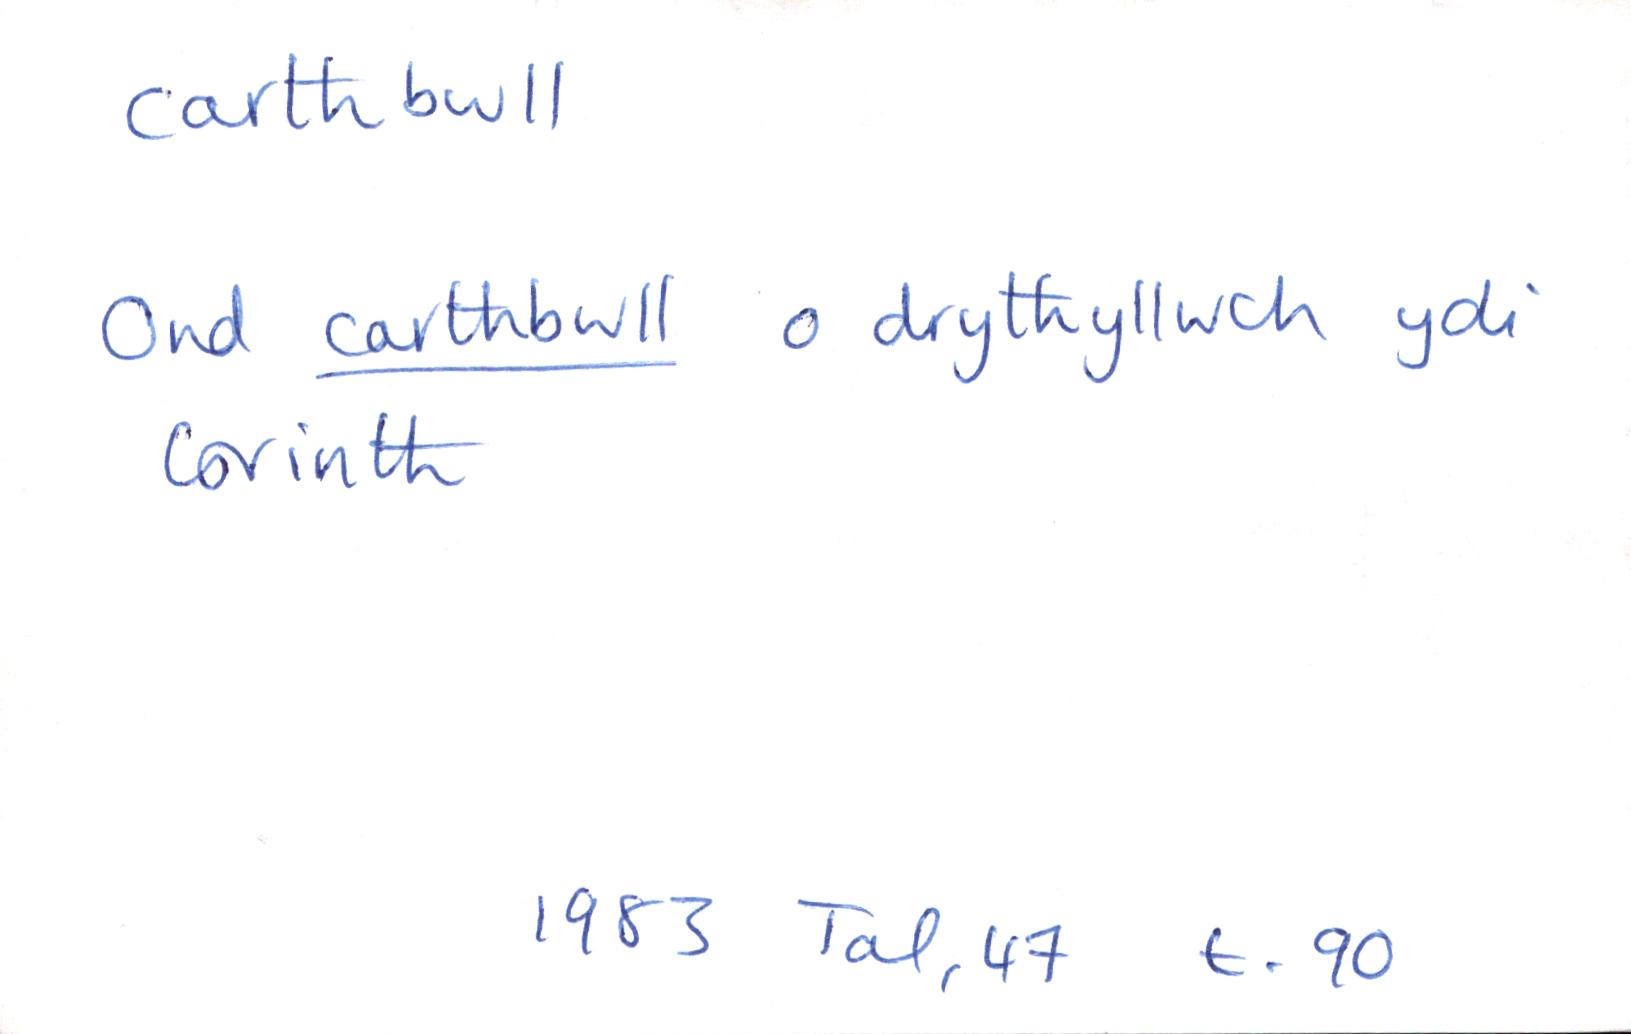 carthbwll
Ond carthbwll o drythyllwch ydi
Corinth
1983 Tal, 47 t. 90